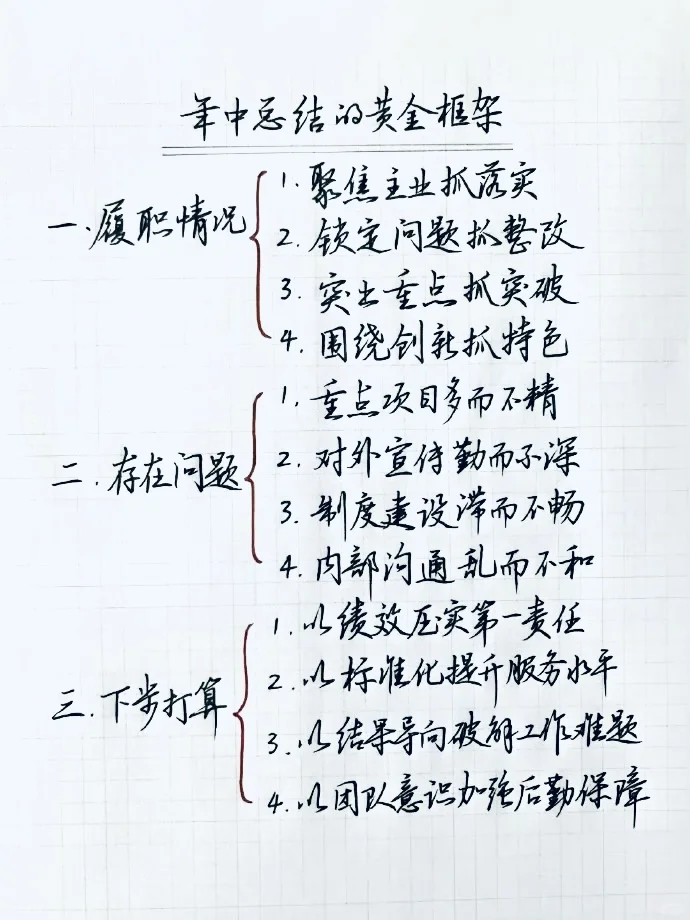 年中总结的黄金框架
一、履职情况
1. 聚焦主业抓落实
2. 锁定问题抓整改
3. 突出重点抓突破
4. 围绕创新抓特色
二、存在问题
1. 重点项目多而不精
2. 对外宣传勤而不深
3. 制度建设滞而不畅
4. 内部沟通乱而不和
三、下步打算
1. 以绩效压实第一责任
2. 以标准化提升服务水平
3. 以结果导向破解工作难题
4. 以团队意识加强后勤保障